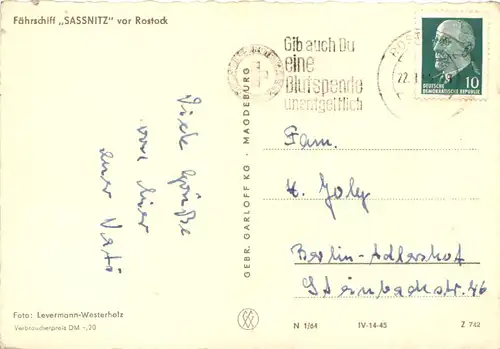 Fährschiff „SASSNITZ" vor Rostock
Gib auch Du
eine
Blutspende
unentgeltlich
10
DEUTSCHE
DEMOKRATISCHE REPUBLIK
Viele Grüße
von hier
euer Vati
GEBR. GARLOFF KG · MAGDEBURG
Fam.
H. Joly
Berlin-Adlershof
Steinbachstr. 46
Foto: Levermann-Westerholz
Verbraucherpreis DM -,20
N 1/64 IV-14-45 Z 742